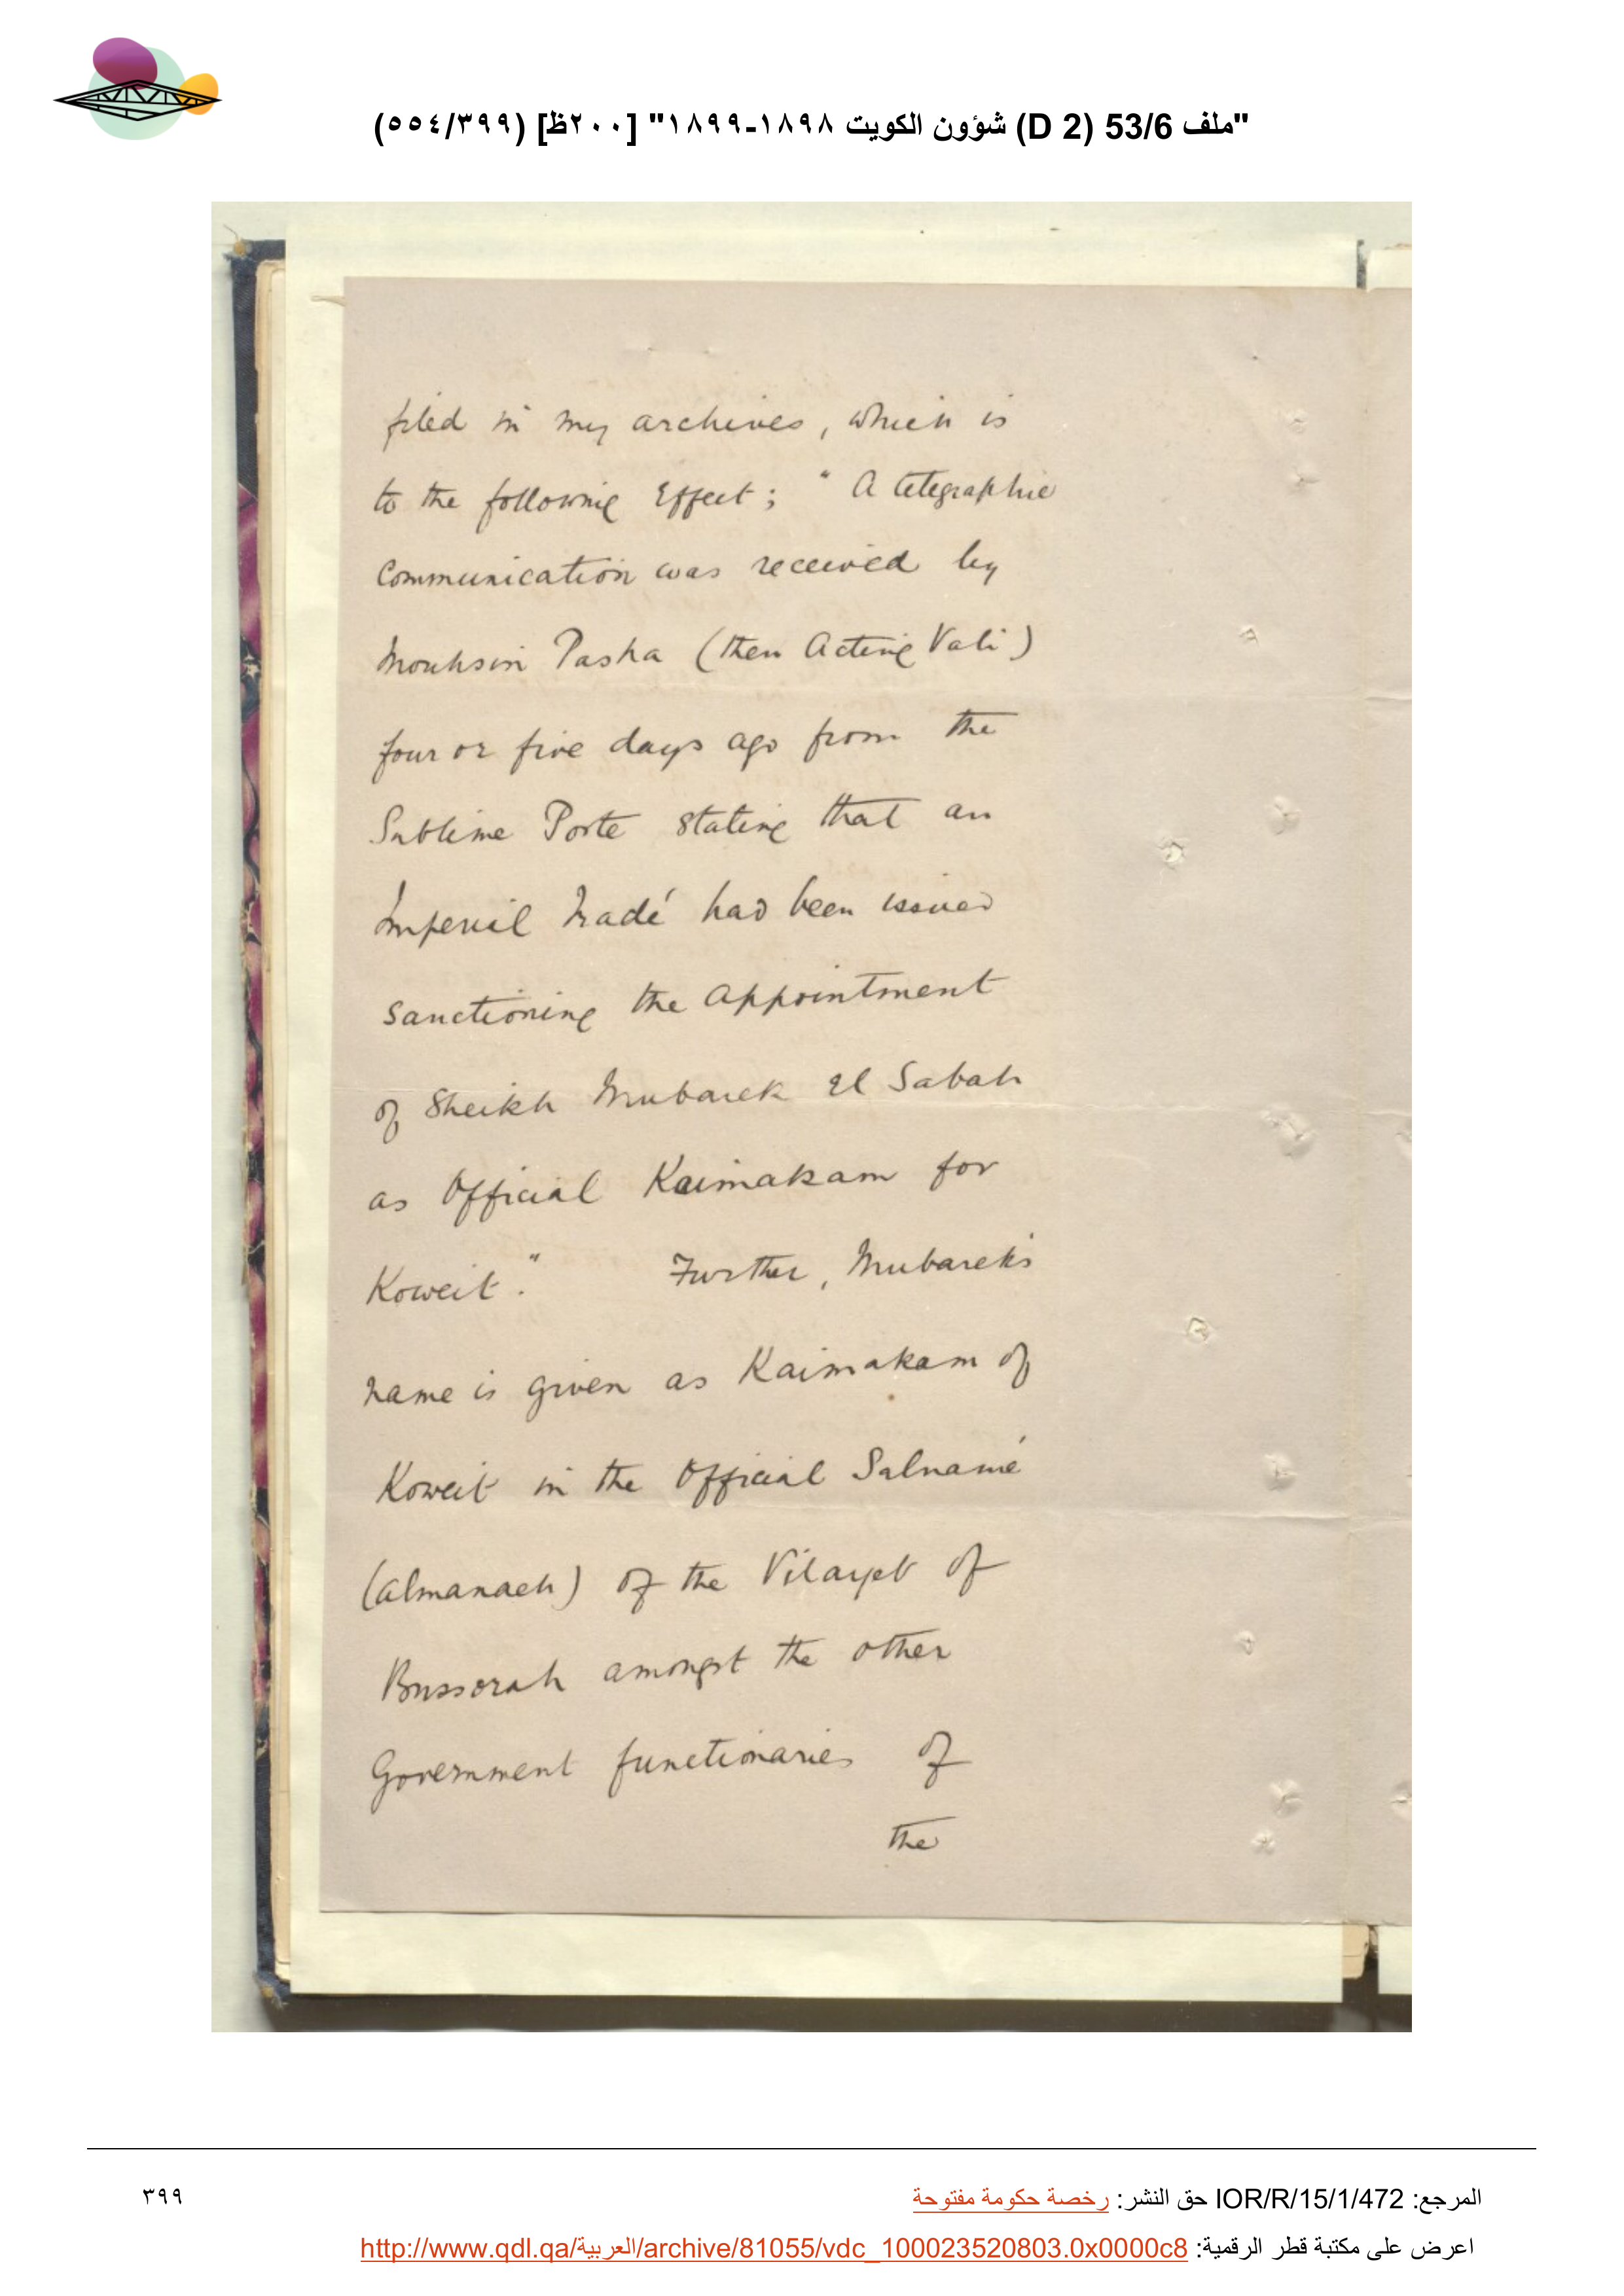 "ملف 53/6 (D 2) شؤون الكويت ١٨٩٨-١٨٩٩" [٢٠٠ظ] (٥٥٤/٣٩٩)
filed in my archives, which is
to the following Effect; " A telegraphic
Communication was received by
Mouhsin Pasha (then Acting Vali)
four or five days ago from the
Sublime Porte stating that an
Imperial Iradé had been issued
sanctioning the appointment
of Sheikh Mubarek El Sabah
as Official Kaimakam for
Koweit." Further, Mubarek's
name is given as Kaimakam of
Koweit in the Official Salnamé
(almanach) of the Vilayet of
Bussorah amongst the other
Government functionaries of
the
المرجع: IOR/R/15/1/472 حق النشر: رخصة حكومة مفتوحة
٣٩٩
اعرض على مكتبة قطر الرقمية: http://www.qdl.qa/العربية/archive/81055/vdc_100023520803.0x0000c8